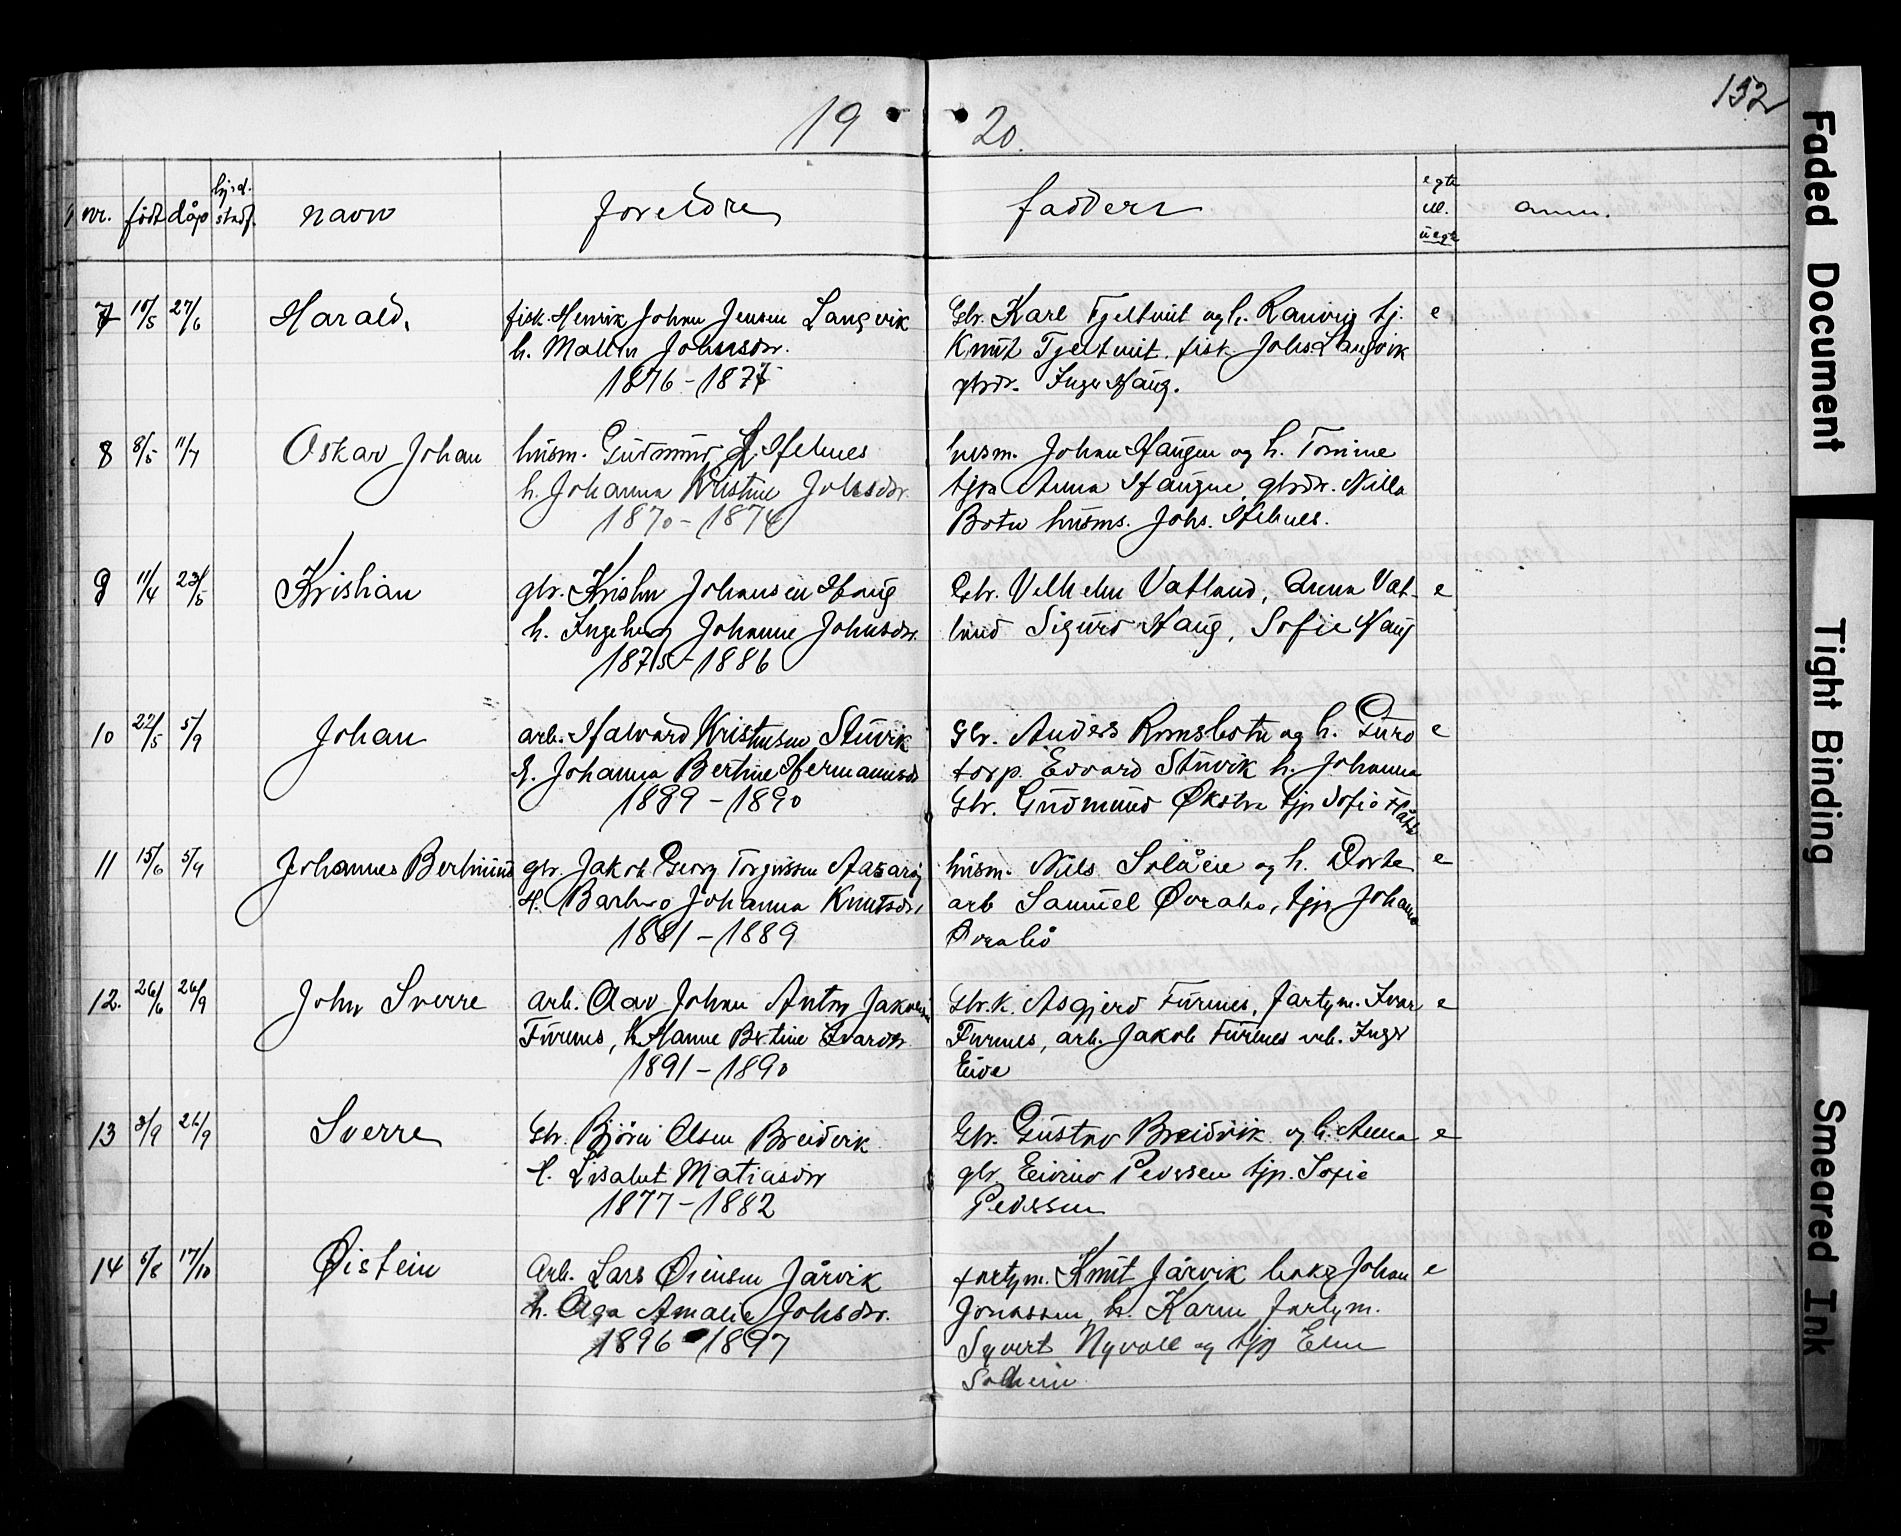 132
19 20.
nr. født dåp hj.d. stadf. navn foreldre faddere egte ell. uegte anm.
7 10/5 27/6 Harald, fisk. Henrik Johan Jensen Langvik Gbr. Karl Tjeltveit og h. Ranveig tj. e
h. Malen Johnsdr. Knut Tjeltveit, fisk. Johs Langvik
1876 - 1877 gbrdr. Inger Haug.
8 8/5 11/7 Oskar Johan husm. Gudmund Helnes husm. Johan Haugen og h. Tomine
h. Johanna Kristine Johsdr. tjp Anna Haugen, gbrdr. Nilla
1870 - 1874 Botn husms. Johs. Helnes.
9 11/4 23/5 Kristian gbr. Kristen Johansen Haug Gbr. Vilhelm Vatland, Anna Vat- e
h. Ingeborg Johanne Johnsdr. land Sigurd Haug, Sofie Haug
1875 - 1886
10 22/5 5/9 Johan arb. Halvard Kristensen Stuvik Gbr. Anders Romsbotn og h. Guro e
h. Johanna Bertine Hermannsdr torp. Edvard Stuvik h. Johanna
1889 - 1890 Gbr. Gudmund Økstra tjp Sofie
11 15/6 5/9 Johannes Bertinius gbr. Jakob Georg Torgersen husm. Nils Solåeie og h. Dorte e
h. Barbro Johanna Knutsdr. arb Samuel Øvrabø, tjp Johanna
1881 - 1889 Øvrabø
12. 26/6 26/9 John Sverre arb. Olav Johan Anton Jakobsen Gbr.k. Asgjerd Furnes, fartym. Ivar e
Furnes, h. Hanne Bertine Ivarsdr. Furnes, arb. Jakob Furnes arb. Inger
1891 - 1890 Eide
13 3/9 26/9 Sverre Gbr. Bjørn Olsen Breidvik Gbr. Gustav Breidvik og h. Anna e
h. Lisabet Matiasdr gbr. Eivind Pedersen tjp. Sofie
1877 - 1882 Pedersen
14 6/8 17/10 Øistein Arb. Lars Øiensen Jårvik fartym. Knut Jårvik Johan e
h. Olga Amalie Johsdr. Jonassen, h. Karen fartym.
1896 - 1897 Syvert Nyvoll og tjp Elen
Solheim
Faded Document
Tight Binding
Smeared Ink